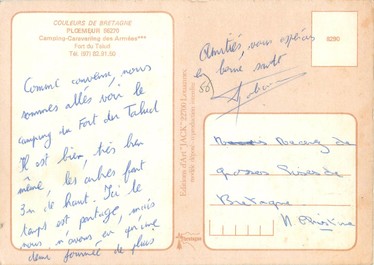 COULEURS DE BRETAGNE
PLŒMEUR 56270
Camping-Caravaning des Armées***
Fort du Talud
Tél. (97) 82.91.50
Comme convenu, nous
sommes allés voir le
camping du Fort du Talud
Il est bien, très bien
même, les arbres font
3m de haut. Ici le
temps est partagé, mais
nous n'avons eu qu'une
demi journée de pluie
Editions d'Art "JACK" 22700 Louannec
modèle déposé reproductions interdites
Amitiés, vous espérons
en bonne santé
8290
de
Bretagne